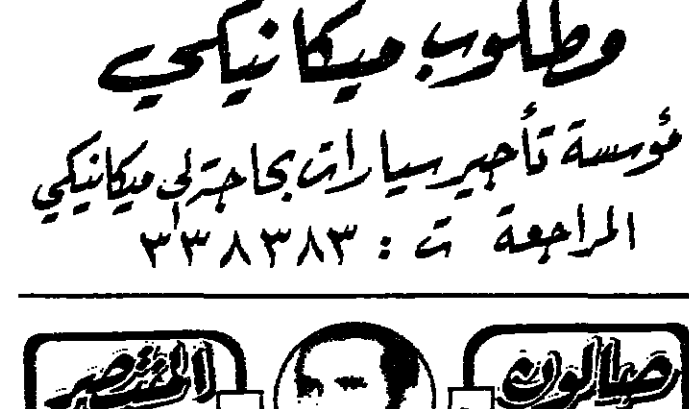 مطلوب ميكانيكي
مؤسسة تأجير سيارات بحاجة إلى ميكانيكي
المراجعة ت : ٣٣٨٣٨٣
صالون المنتصر